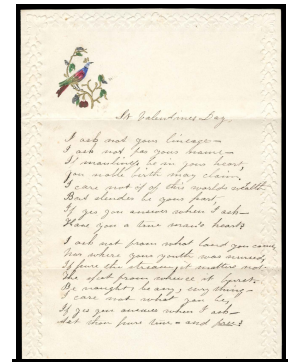 St Valentines Day,
I ask not your lineage—
I ask not for your name—
If manliness be in your heart,
You noble birth may claim.
I care not if of this world's wealth
But slender be your part,
If yes you answer when I ask—
Have you a true man's heart?
I ask not from what land you came,
Nor where your youth was nursed,
If pure the stream, it matters not
The spot from whence it burst.
I care not what you be,
If yes you answer when I ask—
Art thou pure true and free?